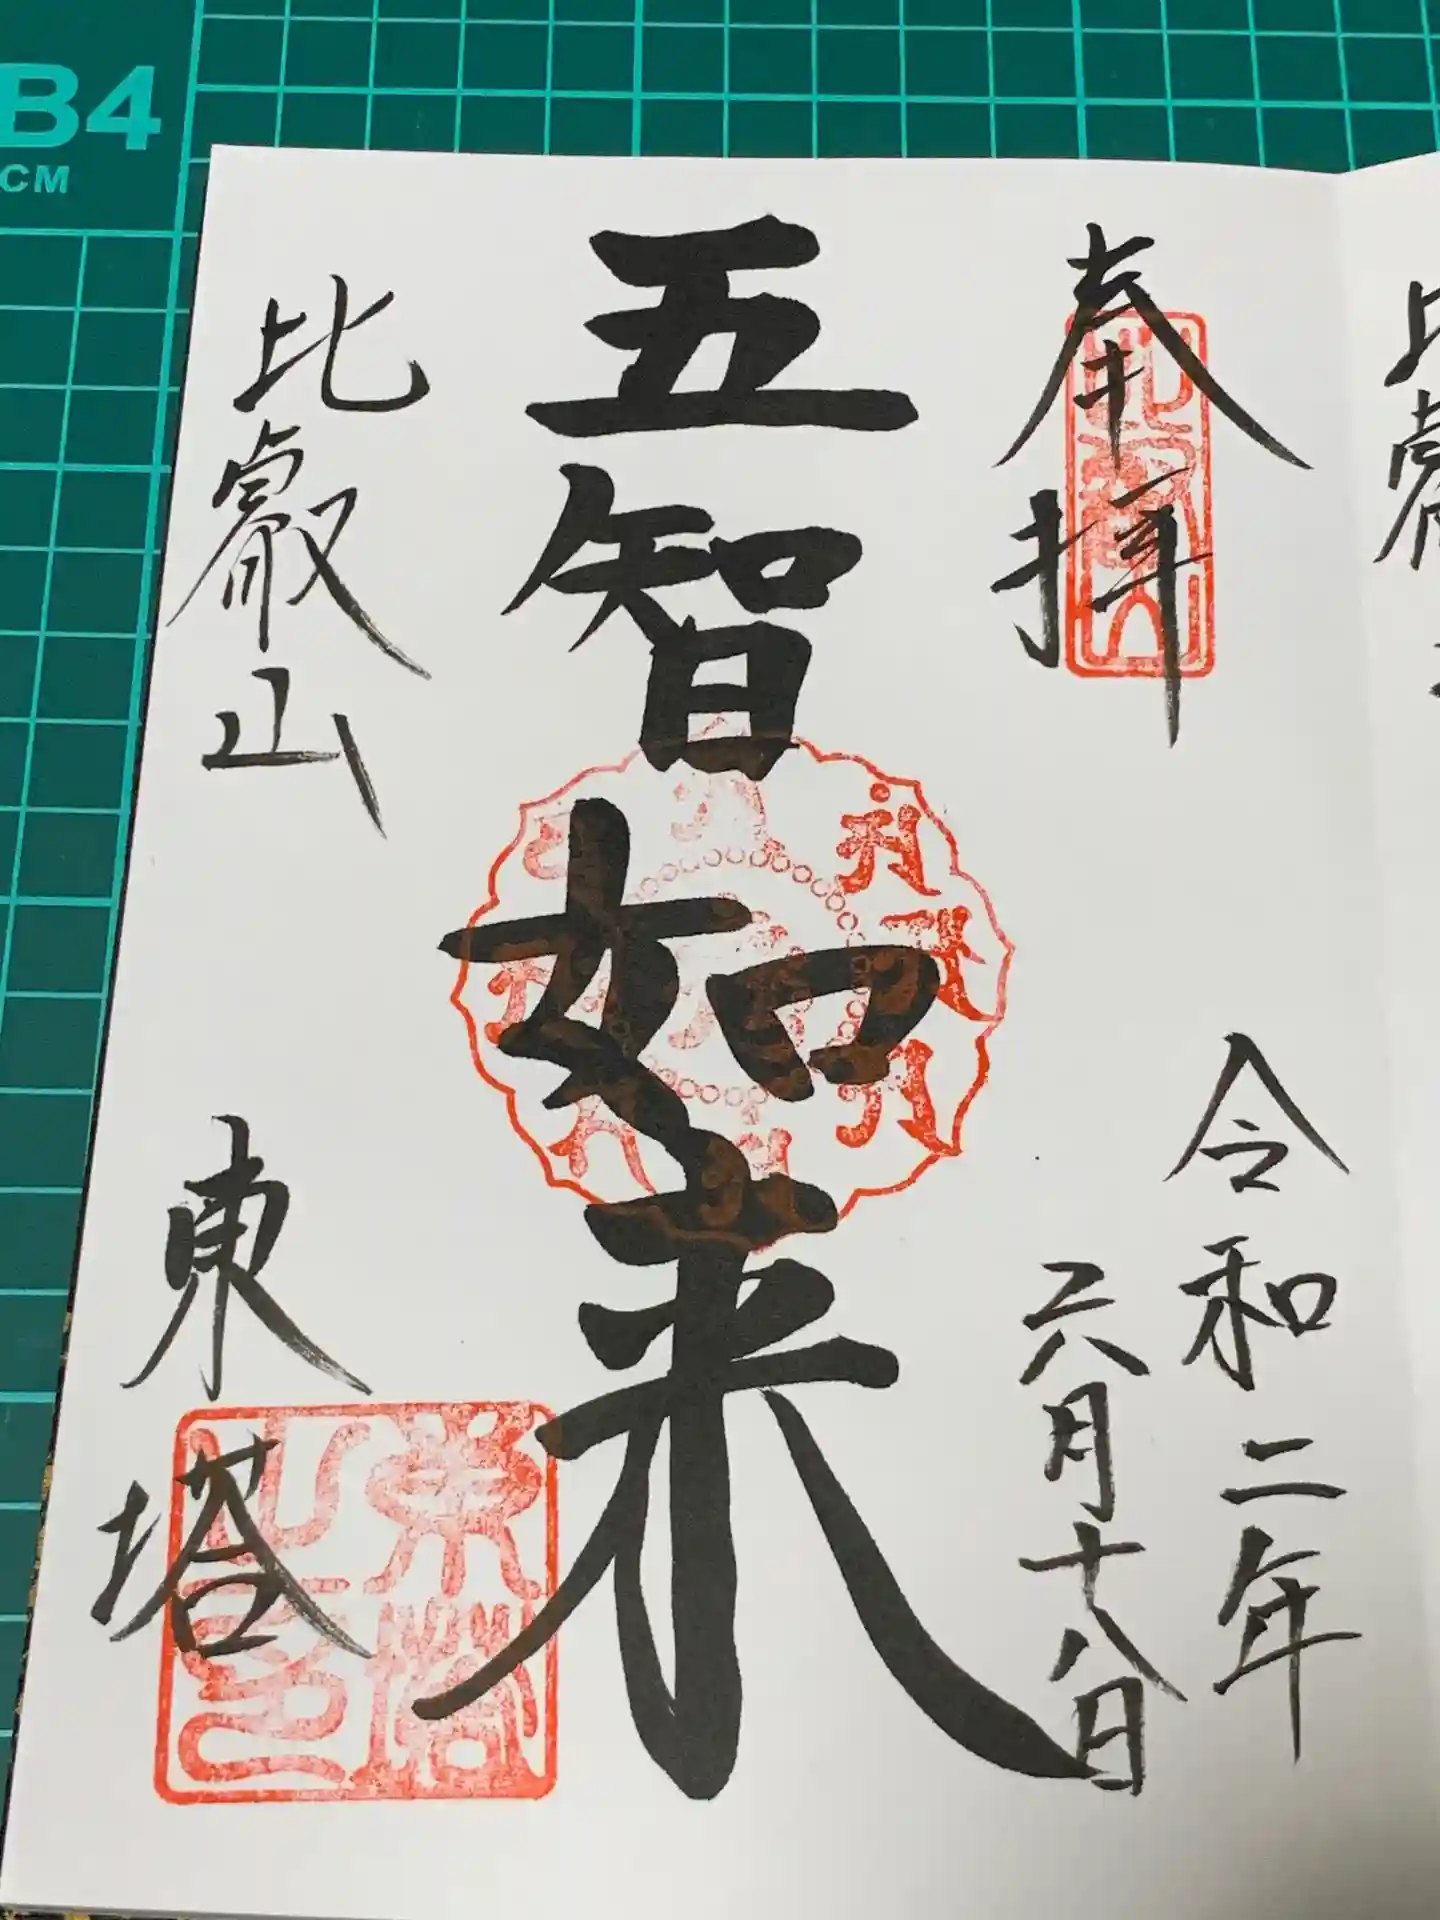 B4
CM
奉拝
令和二年
六月十八日
五智如来
比叡山
東塔